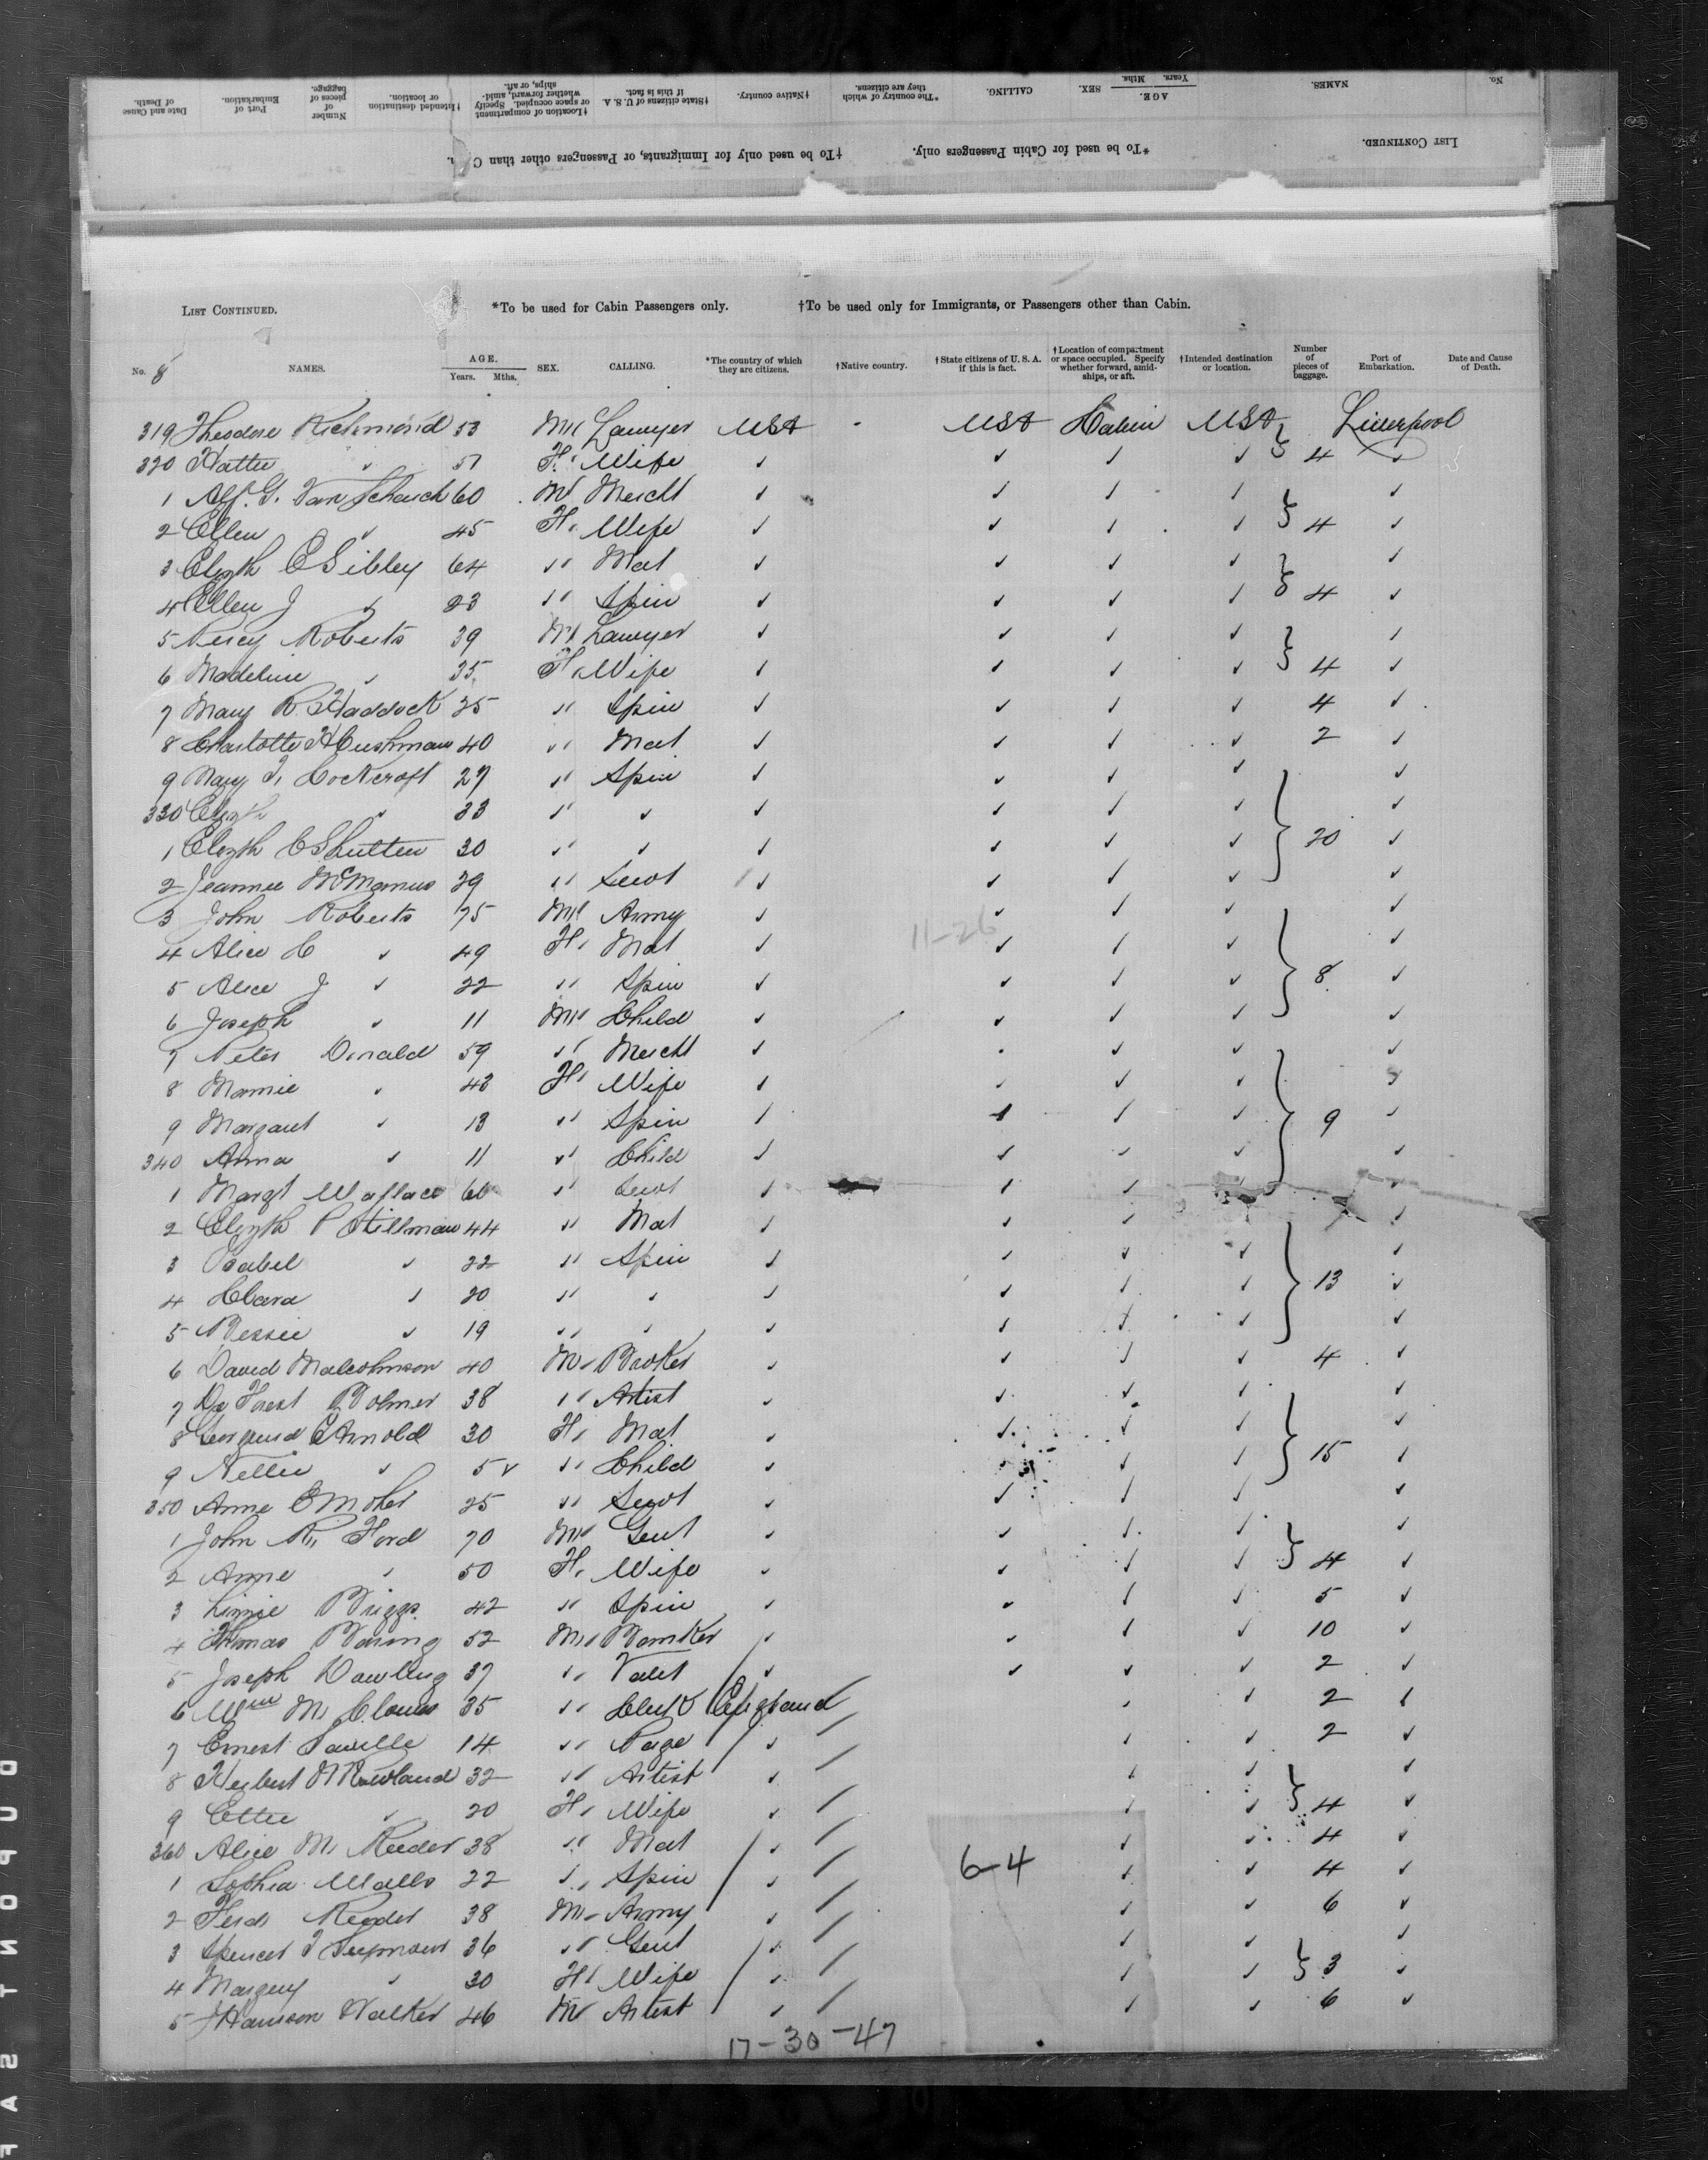 LIST CONTINUED.
*To be used for Cabin Passengers only.
†To be used only for Immigrants, or Passengers other than C
No.
NAMES.
AGE.
Years. Mths.
SEX.
CALLING.
*The country of which they are citizens.
†Native country.
†State citizens of U. S. A. if this is fact.
†Location of compartment or space occupied. Specify whether forward, amidships, or aft.
†Intended destination or location.
Number of pieces of baggage.
Port of Embarkation.
Date and Cause of Death.
LIST CONTINUED. *To be used for Cabin Passengers only. †To be used only for Immigrants, or Passengers other than Cabin.
No. 8 NAMES. AGE. Years. Mths. SEX. CALLING. *The country of which they are citizens. †Native country. †State citizens of U. S. A. if this is fact. †Location of compartment or space occupied. Specify whether forward, amidships, or aft. †Intended destination or location. Number of pieces of baggage. Port of Embarkation. Date and Cause of Death.
319 Theodore Richmond 53 Ml Lawyer USA - USA Cabin USA Liverpool
320 Hattie ✓ 51 F. Wife ✓ ✓ ✓ ✓ 4 ✓
1 Alf. G. Van Schaick 60 M Mercht ✓ ✓ ✓ ✓ ✓
2 Ellen ✓ 45 F. Wife ✓ ✓ ✓ ✓ 4 ✓
3 Elizth C Sibley 64 " Mat ✓ ✓ ✓ ✓ ✓
4 Ellen J ✓ 23 " Spin ✓ ✓ ✓ ✓ 4 ✓
5 Percy Roberts 39 Ml Lawyer ✓ ✓ ✓ ✓ ✓
6 Madeline ✓ 35 F. Wife ✓ ✓ ✓ ✓ 4 ✓
7 Mary R. Haddock 25 " Spin ✓ ✓ ✓ ✓ 4 ✓
8 Charlotte H Cushman 40 " Mat ✓ ✓ ✓ ✓ 2 ✓
9 Mary T. Cockcroft 27 " Spin ✓ ✓ ✓ ✓ ✓
330 Elizth ✓ 33 " ✓ ✓ ✓ ✓ ✓ ✓
1 Elizth C Shutten 30 " ✓ ✓ ✓ ✓ ✓ 20 ✓
2 Jeannie McManus 29 " Servt ✓ ✓ ✓ ✓
3 John Roberts 75 Ml Army ✓ ✓ ✓ ✓ ✓
11-26
4 Alice C ✓ 49 F. Mat ✓ ✓ ✓ ✓ ✓
5 Alice J ✓ 22 " Spin ✓ ✓ ✓ ✓ 8 ✓
6 Joseph ✓ 11 Ml Child ✓ ✓ ✓ ✓ ✓
7 Peter Donald 59 " Mercht ✓ ✓ ✓ ✓
8 Mamie ✓ 42 F. Wife ✓ ✓ ✓ ✓ ✓
9 Margaret ✓ 13 " Spin ✓ ✓ ✓ ✓ 9 ✓
340 Anna ✓ 11 " Child ✓ ✓ ✓ ✓ ✓
1 Margt Wallace 60 " Servt ✓ ✓ ✓ ✓
2 Elizth P Stillman 44 " Mat ✓ ✓ ✓ ✓
3 Isabel ✓ 22 " Spin ✓ ✓ ✓ ✓ ✓
4 Clara ✓ 20 " ✓ ✓ ✓ ✓ ✓ 13 ✓
5 Bessie ✓ 19 " ✓ ✓ ✓ ✓ ✓ ✓
6 David Malcohmson 40 M. Broker ✓ ✓ ✓ ✓ 4 ✓
7 De Forest Bolmer 38 " Artist ✓ ✓ ✓ ✓ ✓
8 C Arnold 30 F. Mat ✓ ✓ ✓ ✓ ✓
9 Nellie ✓ 5 ✓ " Child ✓ ✓ ✓ ✓ 15 ✓
350 Anne E 25 " Servt ✓ ✓ ✓ ✓ ✓
1 John R. Ford 70 Ml Gent ✓ ✓ ✓ ✓ ✓
2 Anne ✓ 50 F. Wife ✓ ✓ ✓ ✓ 4 ✓
3 Briggs 42 " Spin ✓ ✓ ✓ ✓ 5 ✓
4 Thomas Baring 52 Ml Banker ✓ ✓ ✓ ✓ 10 ✓
5 Joseph Dawling 37 " Valet ✓ ✓ ✓ ✓ 2 ✓
6 Wm M. 35 " Clerk England ✓ ✓ 2 ✓
7 Ernest Saville 14 " Page ✓ ✓ ✓ 2 ✓
8 Herbert M Rowland 32 " Artist ✓ ✓ ✓ ✓
9 Ettie ✓ 20 F. Wife ✓ ✓ ✓ 4 ✓
360 Alice M. Reeder 38 " Mat ✓ ✓ ✓ 4 ✓
6-4
1 Sophia Walls 22 " Spin ✓ ✓ ✓ 4 ✓
2 Ferd. Reeder 38 M. Army ✓ ✓ ✓ 6 ✓
3 Spencer T Seymour 36 " Gent ✓ ✓ ✓ ✓
4 Margery ✓ 30 F. Wife ✓ ✓ ✓ 3 ✓
5 J Hanson Walker 46 M Artist ✓ ✓ ✓ 6 ✓
17-30-47